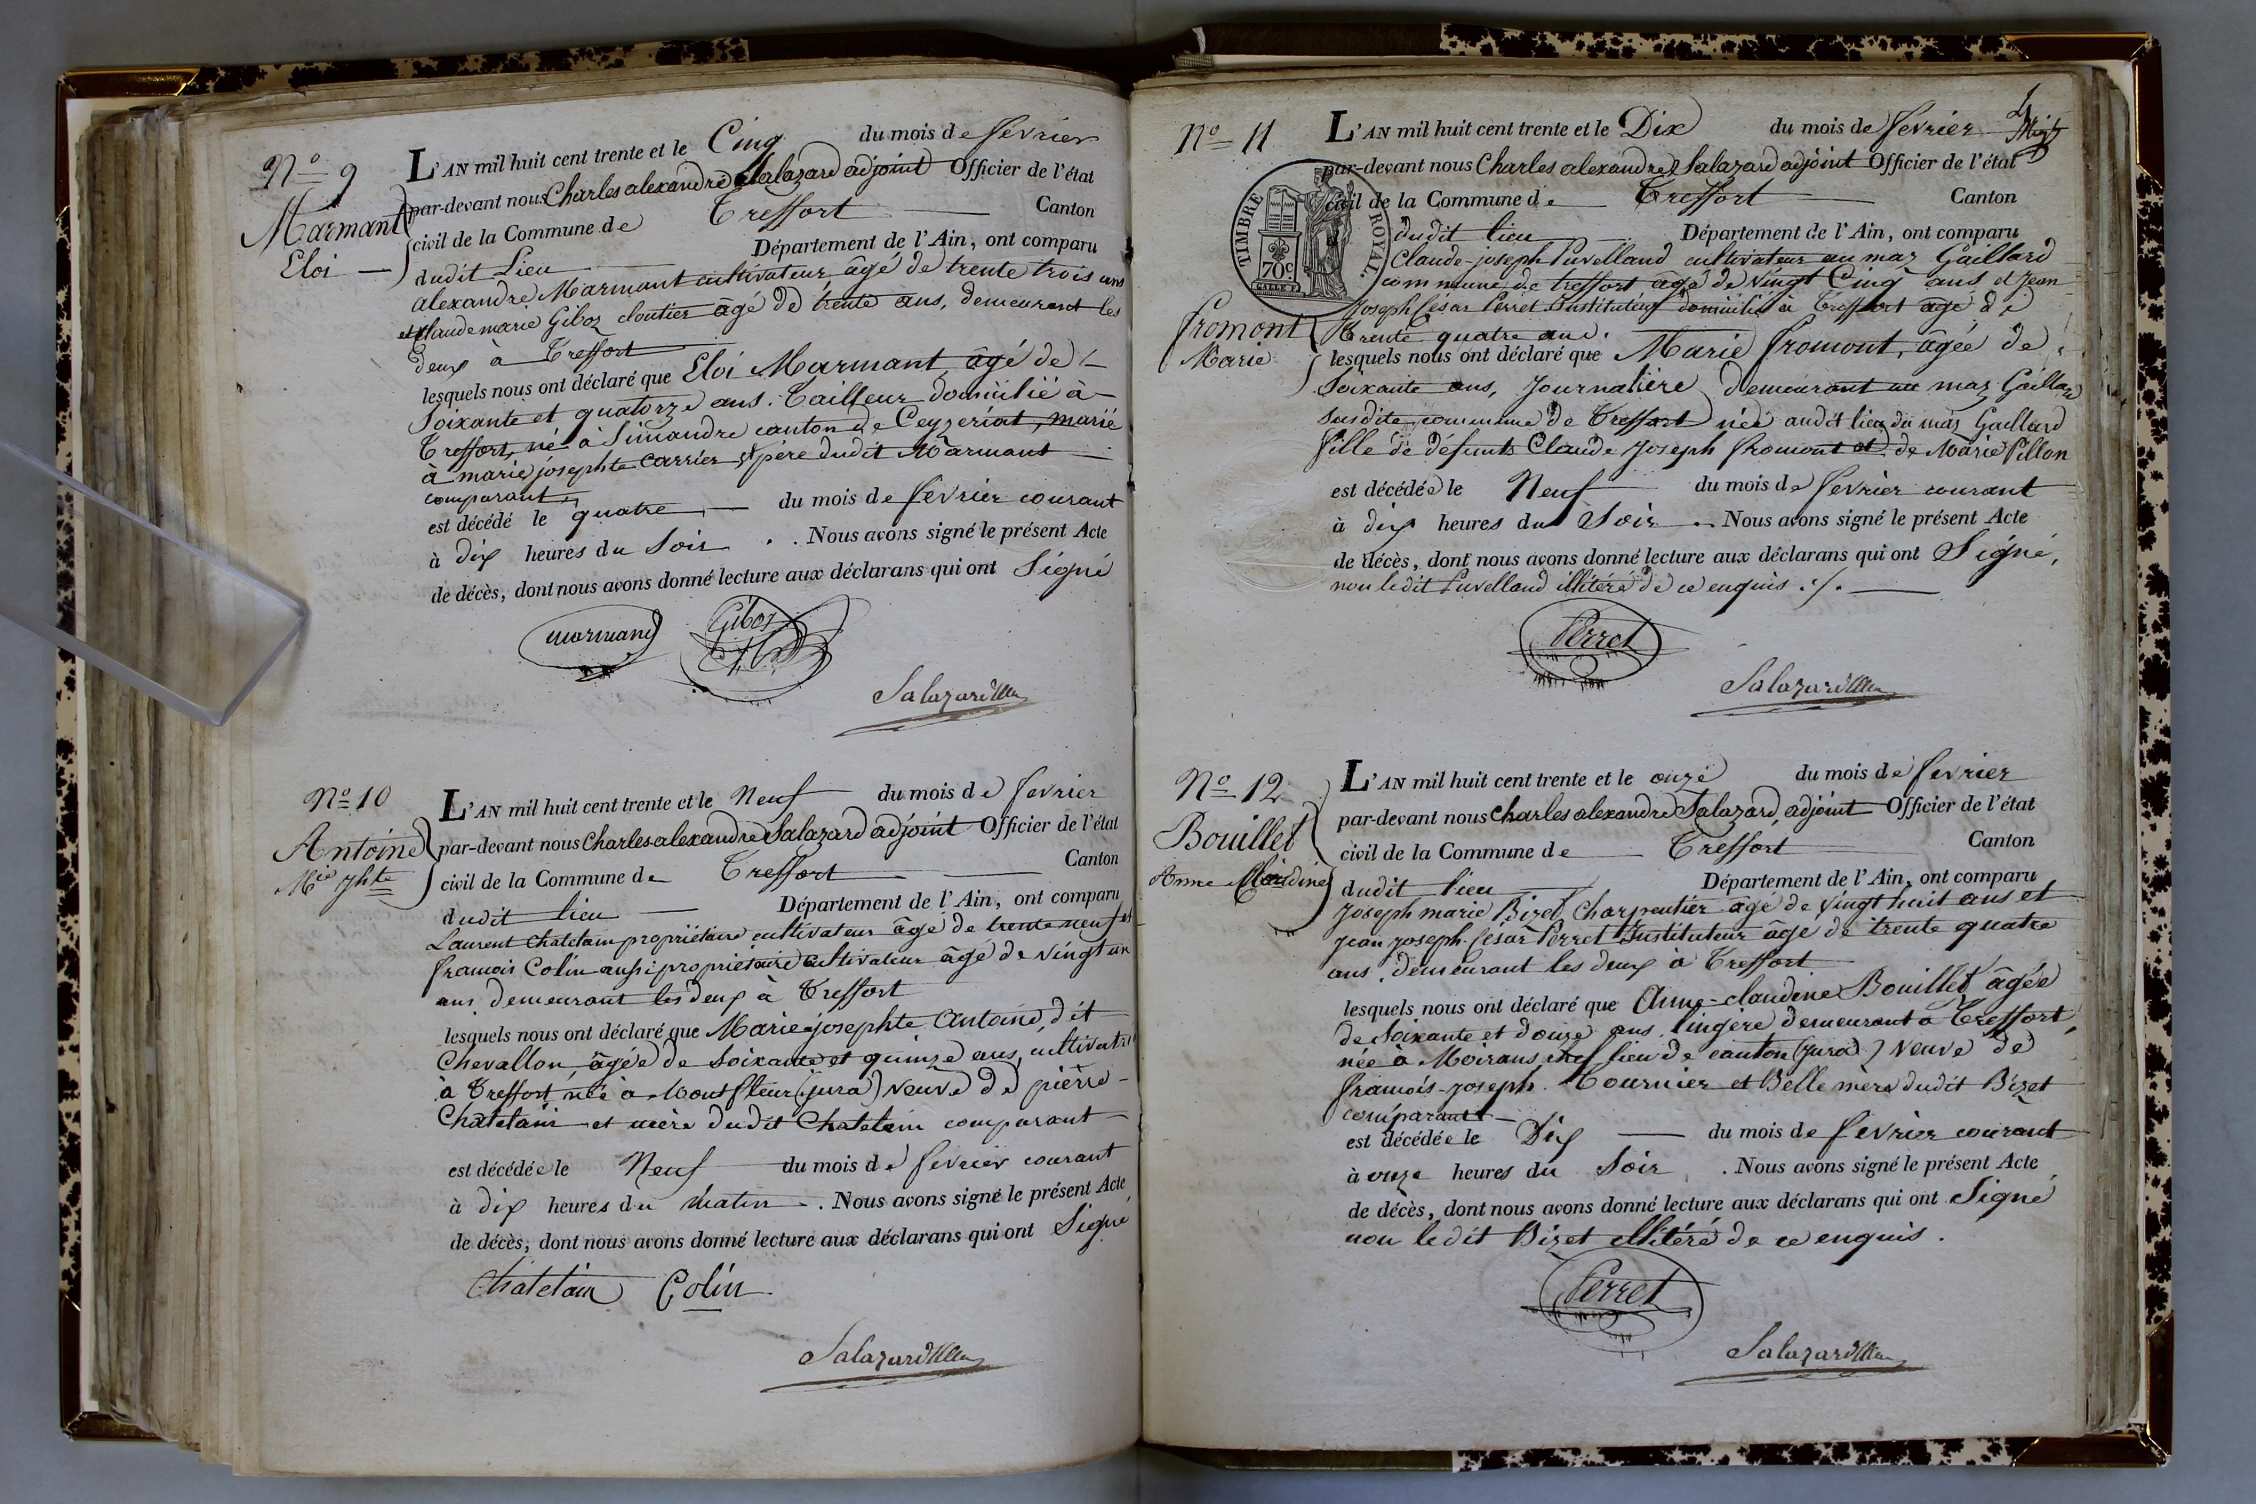 Nº 9
Marmant
Eloi
L'AN mil huit cent trente et le Cinq du mois de fevrier
par-devant nous Charles alexandre Salazard adjoint Officier de l'état
civil de la Commune de Treffort Canton
dudit Lieu Département de l'Ain, ont comparu
alexandre Marmant cultivateur âgé de trente trois ans
et Claude marie Giboz cloutier âgé de trente ans, demeurant les
deux à Treffort
lesquels nous ont déclaré que Eloi Marmant, âgé de
Soixante et quatorze ans. Tailleur domicilié à
Treffort, né à Simandre canton de Ceyzeriat, marié
à marie josephte Carrier et père dudit Marmant
comparant
est décédé le quatre du mois de fevrier courant
à dix heures du Soir . Nous avons signé le présent Acte
de décès, dont nous avons donné lecture aux déclarans qui ont Signé
marmand Giboz
Salazard
Nº 10
Antoine
Mie jhte
L'AN mil huit cent trente et le Neuf du mois de fevrier
par-devant nous Charles alexandre Salazard adjoint Officier de l'état
civil de la Commune de Treffort Canton
dudit lieu Département de l'Ain, ont comparu
Laurent Chatelain propriétaire cultivateur âgé de trente neuf et
francois Colin aussi propriétaire cultivateur âgé de vingt un
ans demeurant les deux à Treffort
lesquels nous ont déclaré que Marie josephte Antoine, dit
Chevallon, âgée de soixante et quinze ans, cultivatrice
à Treffort née à Montfleur (jura) veuve de pierre
Chatelain et mère dudit Chatelain comparant
est décédée le Neuf du mois de fevrier courant
à dix heures du Matin . Nous avons signé le présent Acte
de décès, dont nous avons donné lecture aux déclarans qui ont Signé
Chatelain Colin
Salazard
Nº 11
TIMBRE ROYAL.
70c
fromont
Marie
L'AN mil huit cent trente et le Dix du mois de fevrier
par-devant nous Charles alexandre Salazard adjoint Officier de l'état
civil de la Commune de Treffort Canton
dudit lieu Département de l'Ain, ont comparu
Claude-joseph Puvelland cultivateur au maz Gaillard
commune de treffort âgé de vingt Cinq ans et Jean
Joseph César Perret Instituteur domicilié à Treffort âgé de
Trente quatre ans.
lesquels nous ont déclaré que Marie fromont, âgée de
Soixante ans, Journalière demeurant au maz Gaillard
susdite commune de Treffort née audit lieu du maz Gaillard
fille de défunts Claude Joseph fromont et de Marie Pillon
est décédée le Neuf du mois de fevrier courant
à dix heures du Soir . Nous avons signé le présent Acte
de décès, dont nous avons donné lecture aux déclarans qui ont Signé,
non ledit Puvelland illitéré de ce enquis ./.
Perret
Salazard
Nº 12
Bouillet
Anne Claudine
L'AN mil huit cent trente et le onze du mois de fevrier
par-devant nous Charles alexandre Salazard, adjoint Officier de l'état
civil de la Commune de Treffort Canton
dudit lieu Département de l'Ain, ont comparu
Joseph marie Bizet Charpentier âgé de vingt huit ans et
Jean Joseph-César Perret Instituteur âgé de trente quatre
ans demeurant les deux à Treffort
lesquels nous ont déclaré que Anne-claudine Bouillet âgée
de Soixante et douze ans lingère demeurant à Treffort,
née à Moirans chef lieu de canton (jura) veuve de
francois-joseph Tournier et Belle mère dudit Bizet
comparant
est décédée le Dix du mois de fevrier courant
à onze heures du Soir . Nous avons signé le présent Acte
de décès, dont nous avons donné lecture aux déclarans qui ont Signé
non ledit Bizet illitéré de ce enquis.
Perret
Salazard